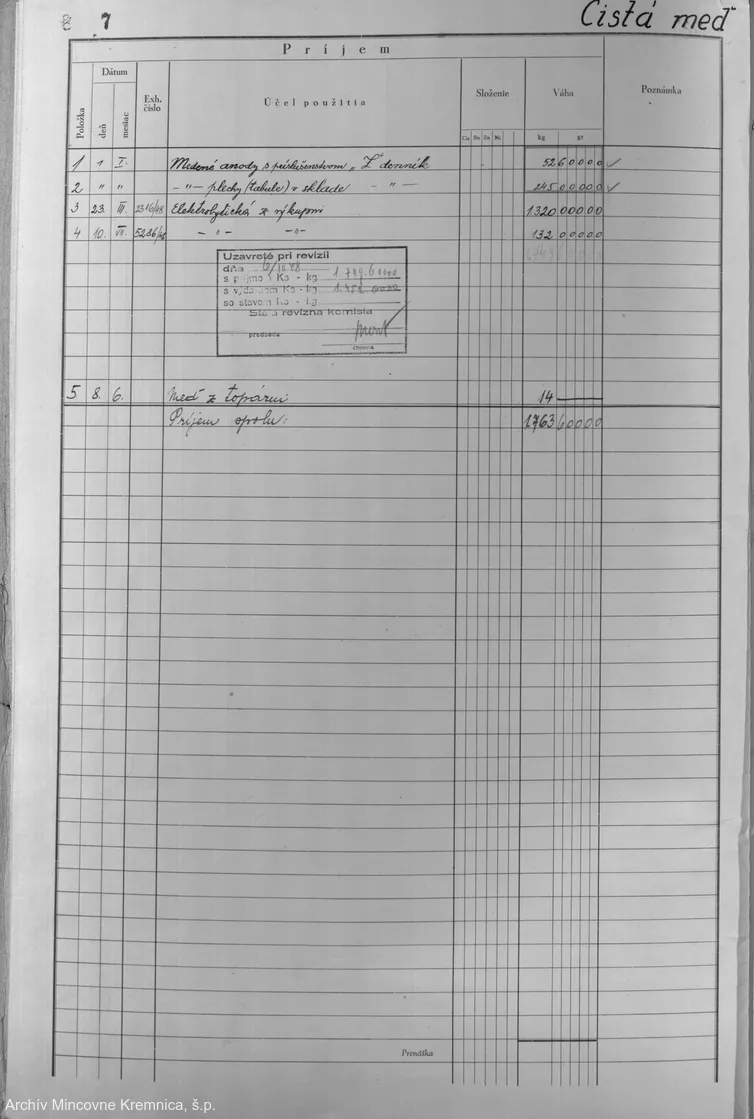 7
Čistá meď
Príjem
Položka Dátum deň mesiac Exh. číslo Účel použitia Složenie Cu Sn Zn Ni Váha kg gr Poznámka
1 1 I. Medené anody s príslušenstvom „Z" denník 526 0000 ✓
2 " " - " - plechy (tabule) v sklade - " - 245 00000 ✓
3 23. III. 2316/48 Elektrolytická z výkupní 1320 00000
4 10. VII. 5286/48 - " - - " - 132 0000
Uzavreté pri revízii
dňa
s príjmom Ks - kg 1.749.60000
s výdavkom Ks - kg 1.452.0000
so stavom Ks - kg
Stála revízna komisia
predseda
5 8. 6. Meď z topárni 14 —
Príjem spolu: 1763 60000
Prenáška
Archív Mincovne Kremnica, š.p.